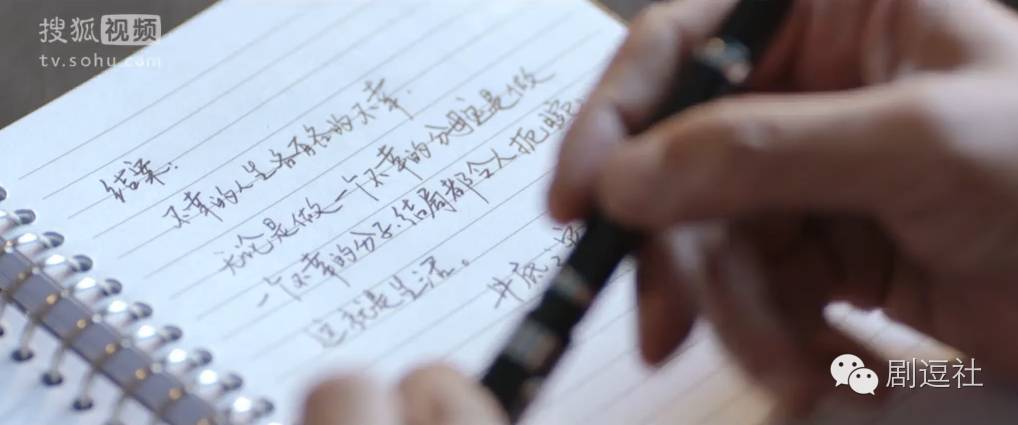 搜狐视频
tv.sohu.com
结果:
不幸的人生各有各的不幸.
无论是做一个不幸的分母还是做
一个不幸的分子.结局都令人扼腕
这就是生活。
井底
剧逗社